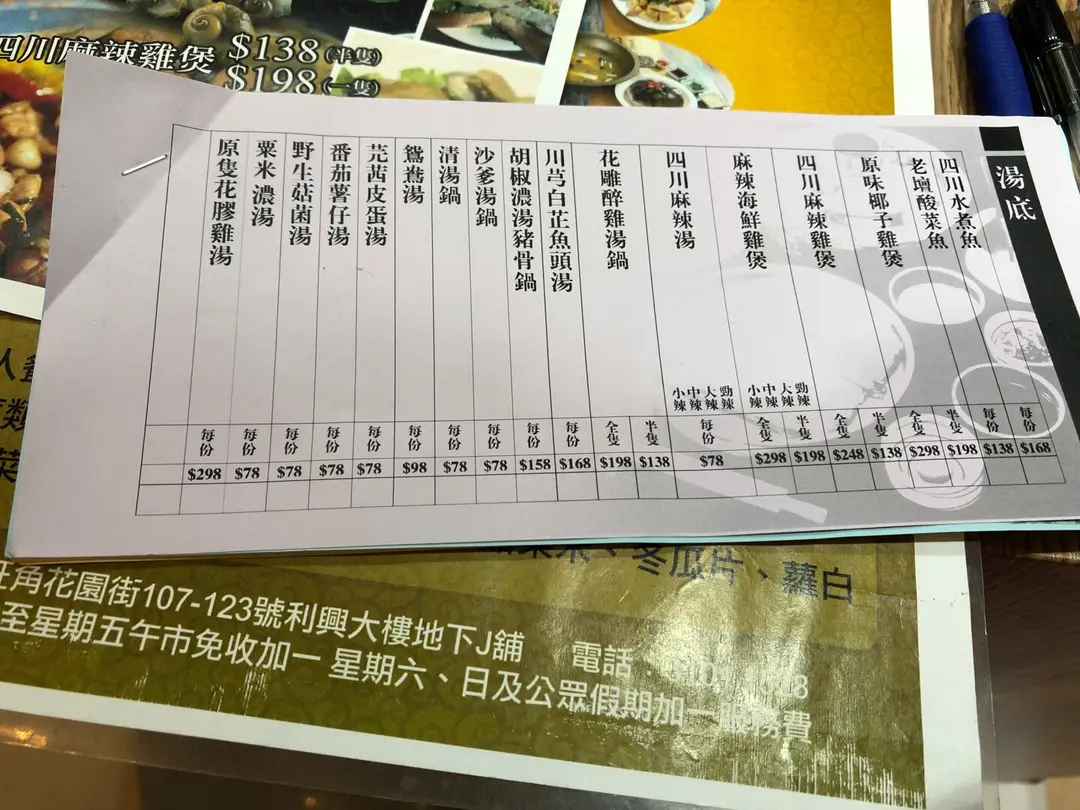 四川麻辣雞煲 $138(半隻)
$198(一隻)
湯底
四川水煮魚 每份 $168
老壇酸菜魚 每份 $138
原味椰子雞煲 半隻 $198 全隻 $298
四川麻辣雞煲 半隻 $138 全隻 $248
麻辣海鮮雞煲 勁辣 大辣 中辣 小辣 半隻 $198 全隻 $298
四川麻辣湯 勁辣 大辣 中辣 小辣 每份 $78
花雕醉雞湯鍋 半隻 $138 全隻 $198
川芎白芷魚頭湯 每份 $168
胡椒濃湯豬骨鍋 每份 $158
沙爹湯鍋 每份 $78
清湯鍋 每份 $78
鴛鴦湯 每份 $98
芫茜皮蛋湯 每份 $78
番茄薯仔湯 每份 $78
野生菇菌湯 每份 $78
粟米 濃湯 每份 $78
原隻花膠雞湯 每份 $298
人
類
菜
、冬瓜片、蘿白
旺角花園街107-123號利興大樓地下J舖 電話:
至星期五午市免收加一 星期六、日及公眾假期加一服務費